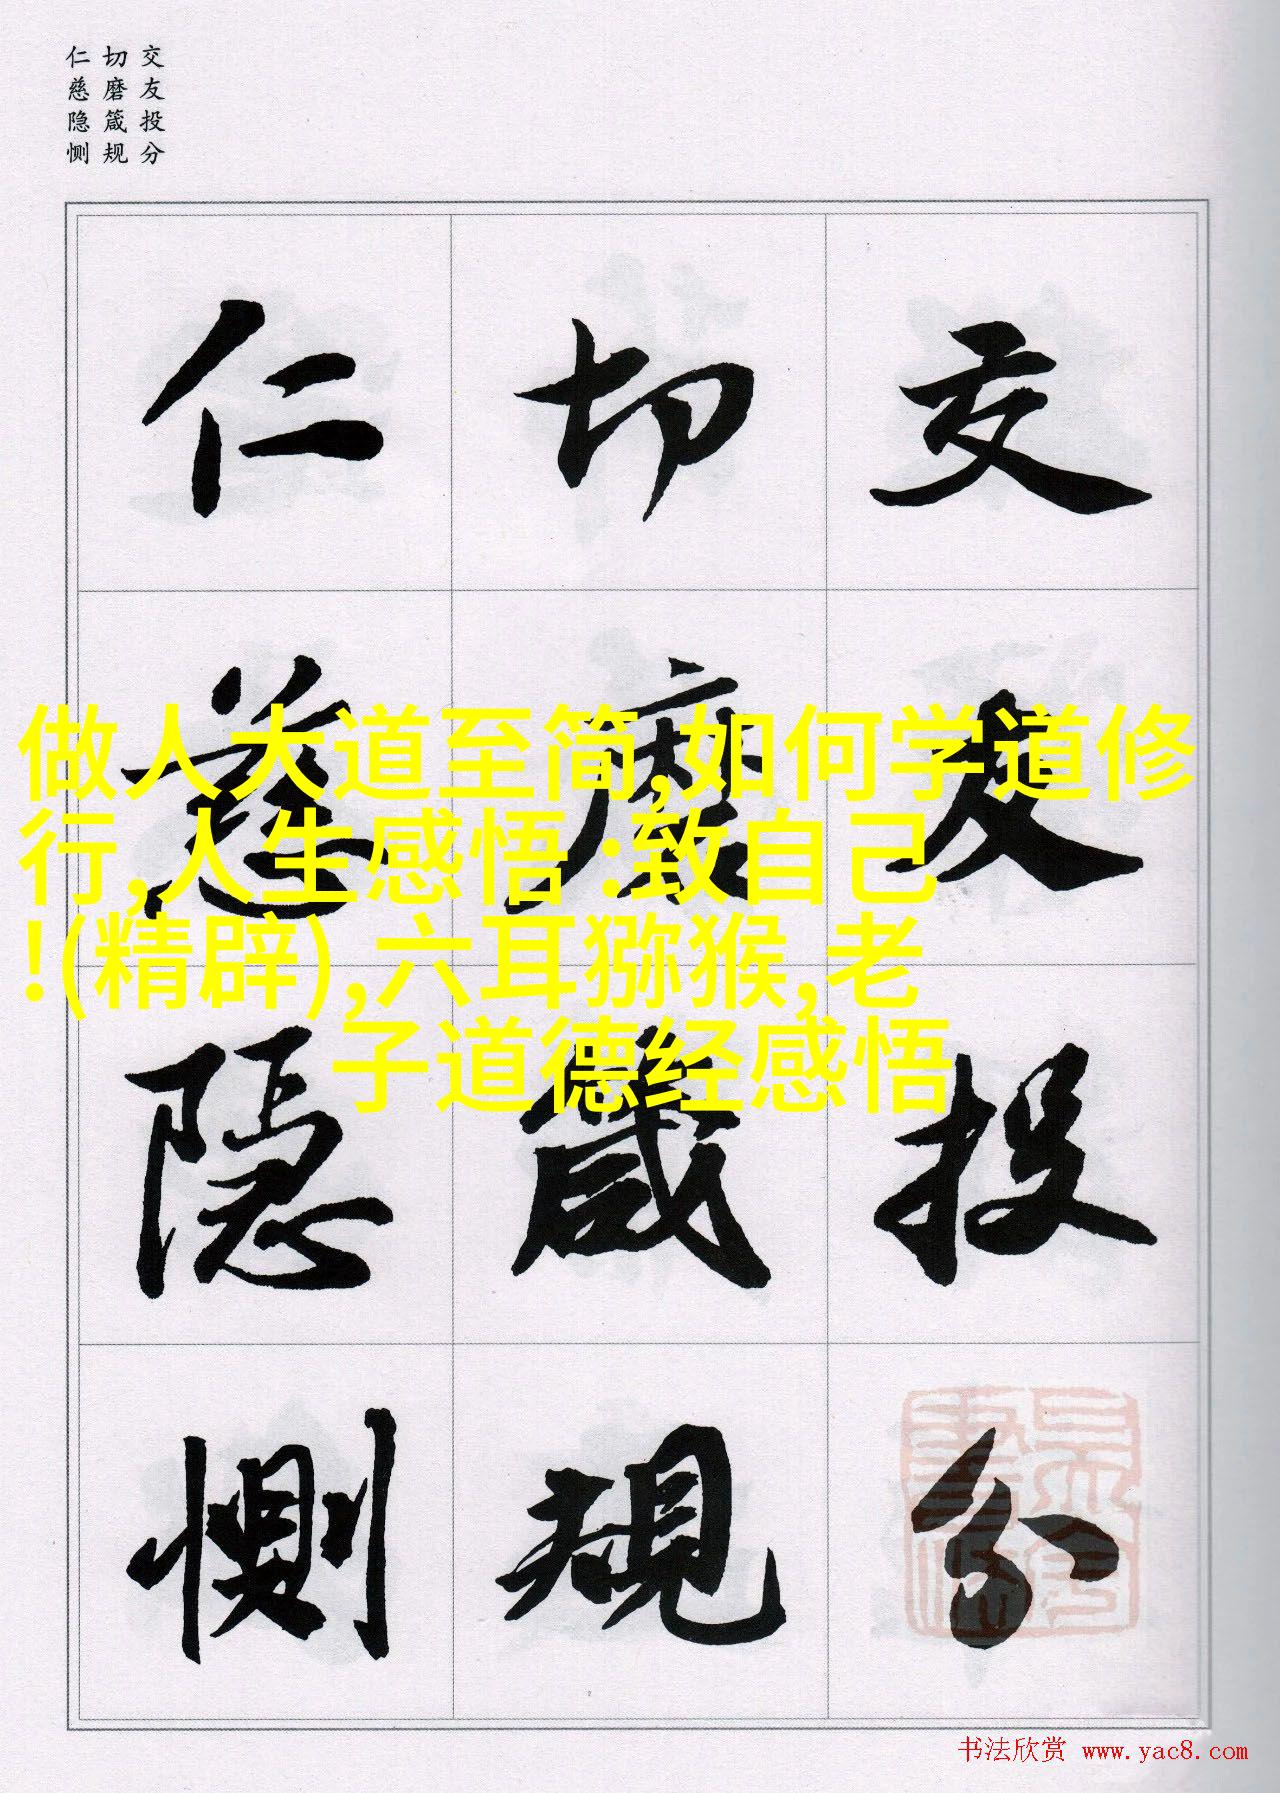 交友投分
切磨箴规
仁慈隐恻
交友投分
切磨箴规
仁慈隐恻
做人大道至简,如何学道修
行,人生感悟:致自己
!(精辟),六耳猕猴,老
子道德经感悟
书法欣赏 www.yac8.com